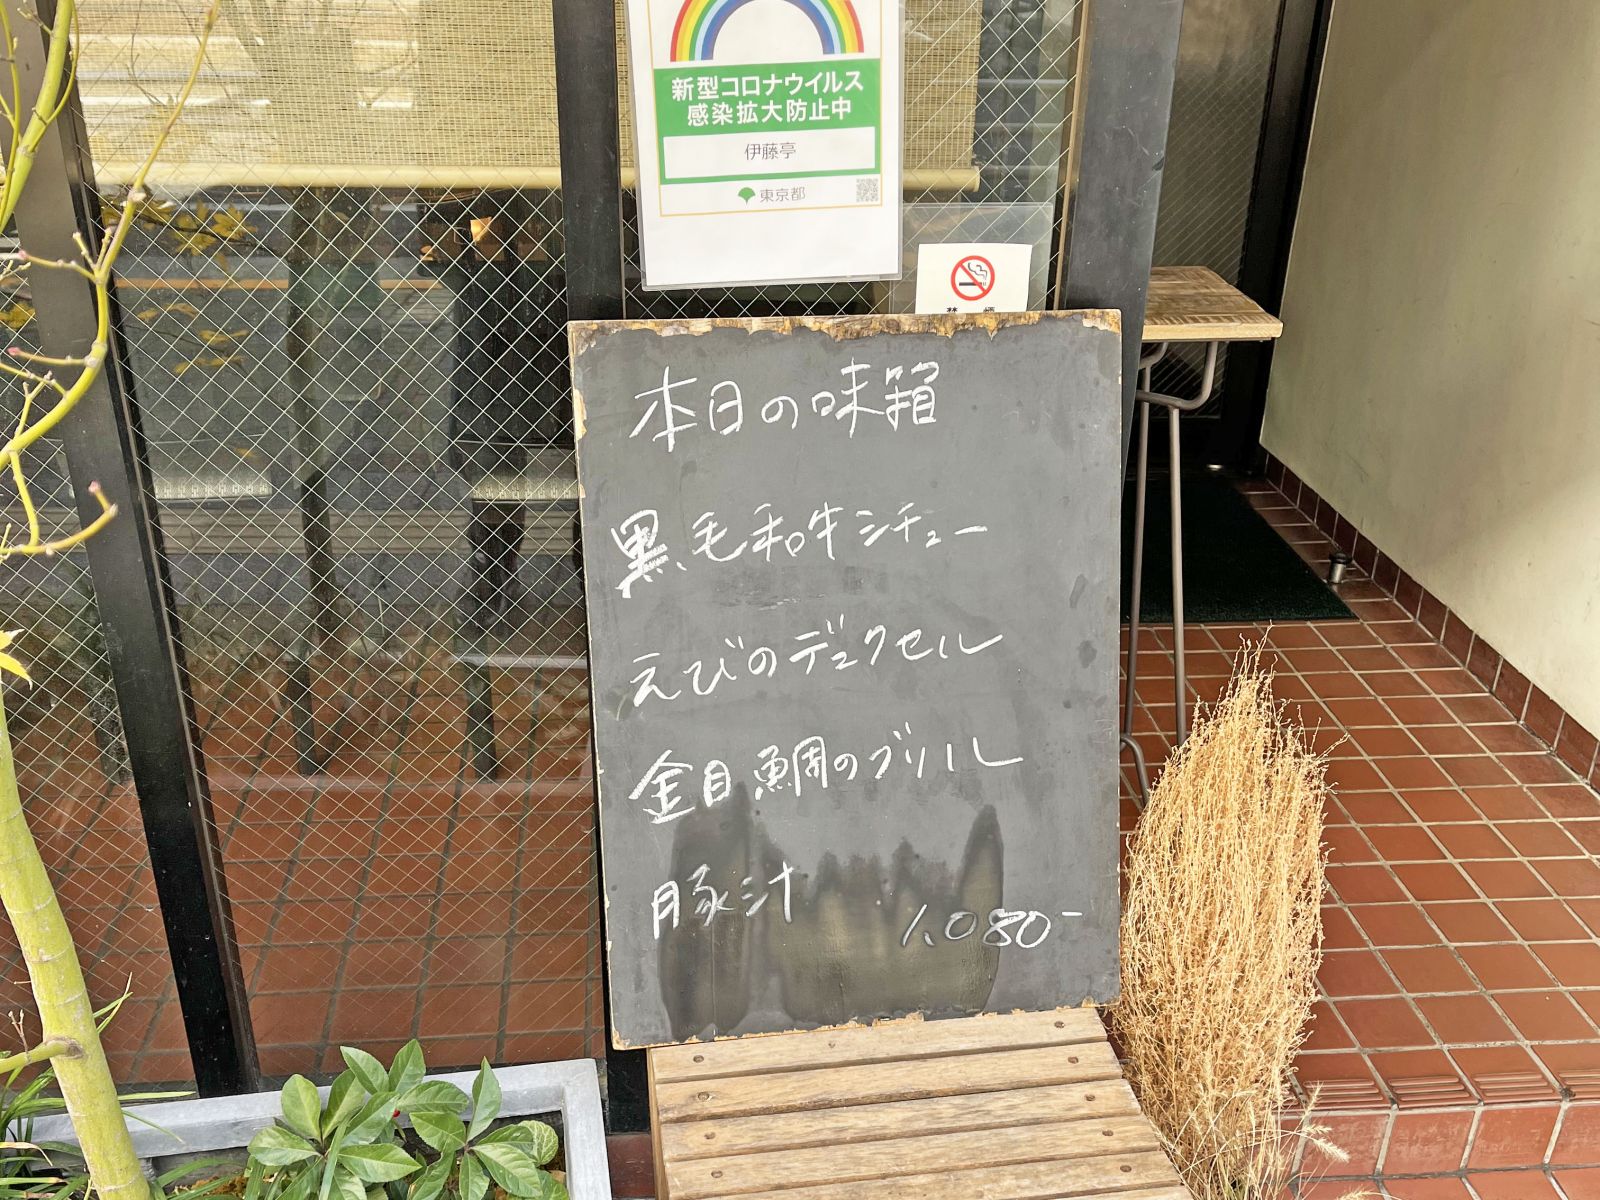 新型コロナウイルス
感染拡大防止中
伊藤亭
東京都
禁煙
本日の味箱
黒毛和牛シチュー
えびのデュクセル
金目鯛のグリル
豚汁
1,080-